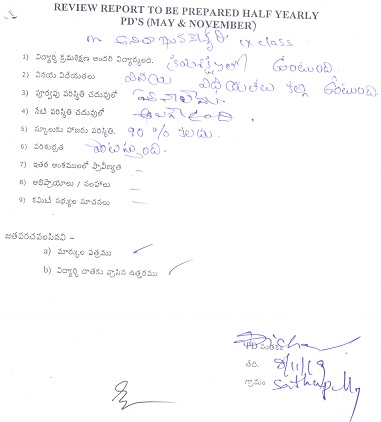 REVIEW REPORT TO BE PREPARED HALF YEARLY
PD'S (MAY & NOVEMBER)
IX class
1) విద్యార్థి క్రమశిక్షణ అందరి విద్యార్థులది. క్రమశిక్షణలో ఉంటుంది.
2) వినయ విధేయతలు వినయ విధేయతలు కల్గి ఉంటుంది
3) పూర్వపు పరిస్థితి చదువులో
4) నేటి పరిస్థితి చదువులో
5) స్కూలుకు హాజరు పరిస్థితి. 90 % కలదు.
6) పరిశుభ్రత పాటిస్తుంది.
7) ఇతర అంశములలో ప్రావీణ్యత –
8) అభిప్రాయాలు / సలహాలు –
9) కమిటీ సభ్యుల సూచనలు –
జతపరచవలసినవి –
a) మార్కుల పత్రము ✓
b) విద్యార్థి దాతకు వ్రాసిన ఉత్తరము ✓
PD సంతకం
తేది. 8/11/19
గ్రామం Sathupally